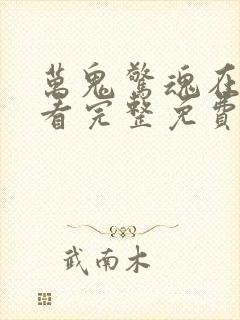 萬鬼驚魂在
看完整免費
武南木